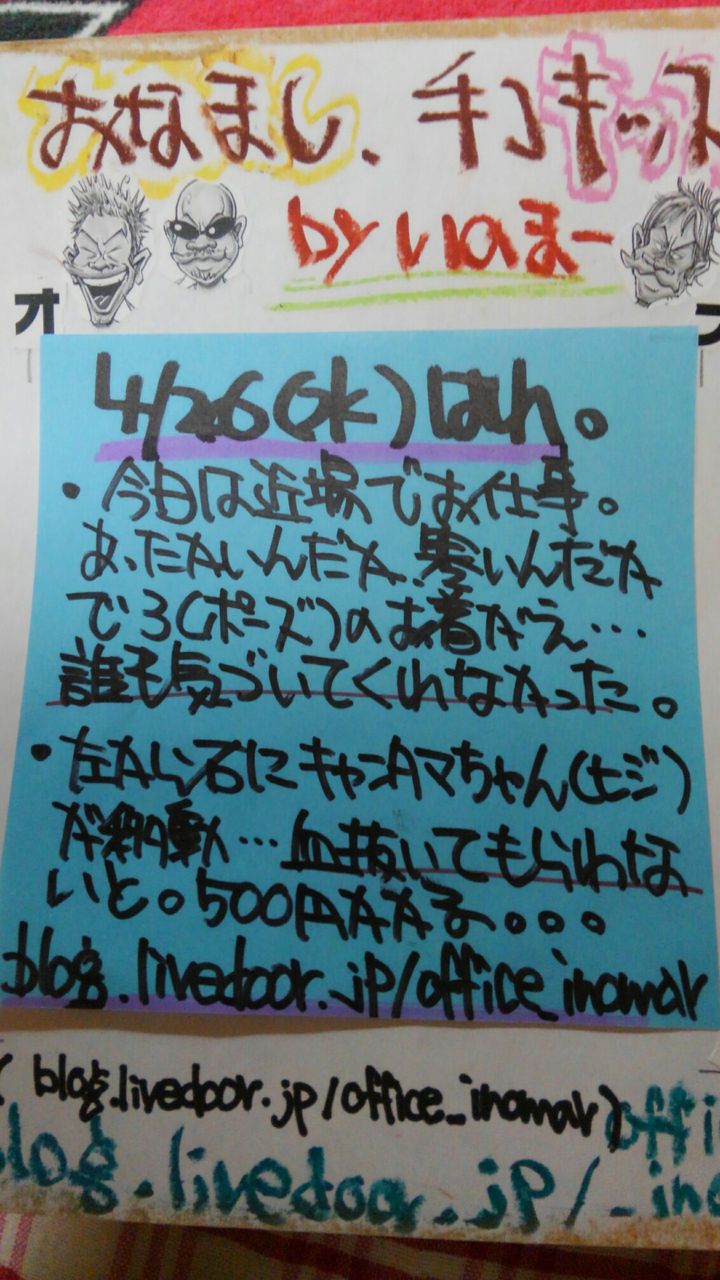 おなまし、チンキッス
by いのまー
オ
フ
4/26(水)はれ。
・今日は近場でお仕事。
あったかいんだか、寒いんだか
で3(ポーズ)のお着がえ…
誰も気づいてくれなかった。
・左から右にキャンタマちゃん(ヒジ)
が移動…血抜いてもらわな
いと。500円ハハ子。。。
blog.livedoor.jp/office_inomar
( blog.livedoor.jp/office_inomar)
offi
blog.livedoor.jp/_ino